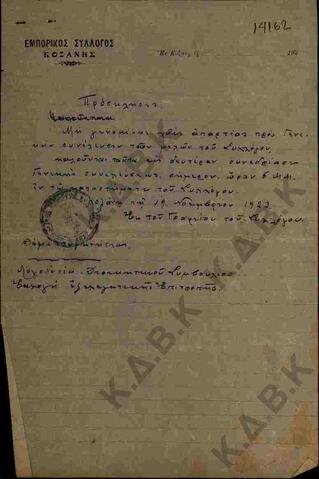 14162
ΕΜΠΟΡΙΚΟΣ ΣΥΛΛΟΓΟΣ
ΚΟΖΑΝΗΣ
Ἐν Κοζάνῃ τῇ 192
Πρόσκλησις
Μὴ γενομένης χθὲς ἀπαρτίας πρὸς Γενι-
κὴν συνέλευσιν τῶν μελῶν τοῦ Συλλόγου,
καλοῦνται ταῦτα εἰς δευτέραν συνεδρίασιν
Γενικῆς συνελεύσεως, σήμερον, ὥραν 6 μ.μ.
ἐν τῷ τοῦ Συλλόγου.
Κοζάνῃ τῇ 19 Νοεμβρίου 1923
Ἐκ τοῦ Γραφείου τοῦ Συλλόγου
Λογοδοσία Διοικητικοῦ Συμβουλίου
Ἐκλογὴ ἐξελεγκτικῆς Ἐπιτροπῆς
Κ.Δ.Β.Κ.
Κ.Δ.Β.Κ.
Κ.Δ.Β.Κ.